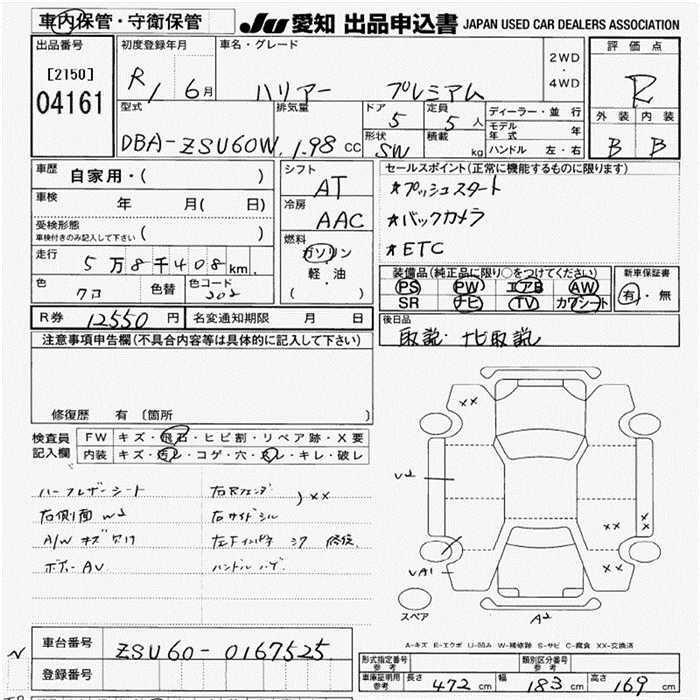 車内保管・守衛保管
JU 愛知 出品申込書 JAPAN USED CAR DEALERS ASSOCIATION
出品番号
[2150]
04161
初度登録年月
R1 6月
車名・グレード
ハリアー プレミアム
2WD
・
4WD
評価点
R
外装 内装
B B
型式
DBA-ZSU60W
排気量
1.98 cc
ドア
5
定員
5 人
形状
SW
積載
kg
ディーラー・並行
モデル年式 年
ハンドル 左・右
車歴
自家用・( )
車検
年 月( 日)
受検形態
車検付きのみ記入して下さい ( )
走行
5万8千408km
色
クロ
色替
色コード
202
シフト
AT
冷房
AAC
燃料
ガソリン
軽・油
( )
セールスポイント(正常に機能するものに限ります)
★プッシュスタート
★バックカメラ
★ETC
装備品(純正品に限り○をつけてください)
PS PW エアB AW
SR ナビ TV カワシート
新車保証書
有・無
R券 12550円
名変通知期限 月 日
後日品
取説・ナビ取説
注意事項申告欄(不具合内容等は具体的に記入して下さい)
修復歴 有 〔箇所 〕
検査員記入欄
FW キズ・飛石・ヒビ割・リペア跡・X要
内装 キズ・汚レ・コゲ・穴・スレ・キレ・破レ
ハーフレザーシート
右側面 W2
A/W キズ 欠け
ボディー AU
右Rフェンダ
右サイドシル
) ××
ハンドル ハゲ
××
U2
××
××
××
UA1
A2
スペア
A-キズ E-エクボ U-凹み W-補修跡 S-サビ C-腐食 XX-交換済
車台番号 ZSU60-0167525
登録番号
形式指定番号 参考
類別区分番号 参考
車庫証明用参考 長さ 472 cm 幅 183 cm 高さ 169 cm